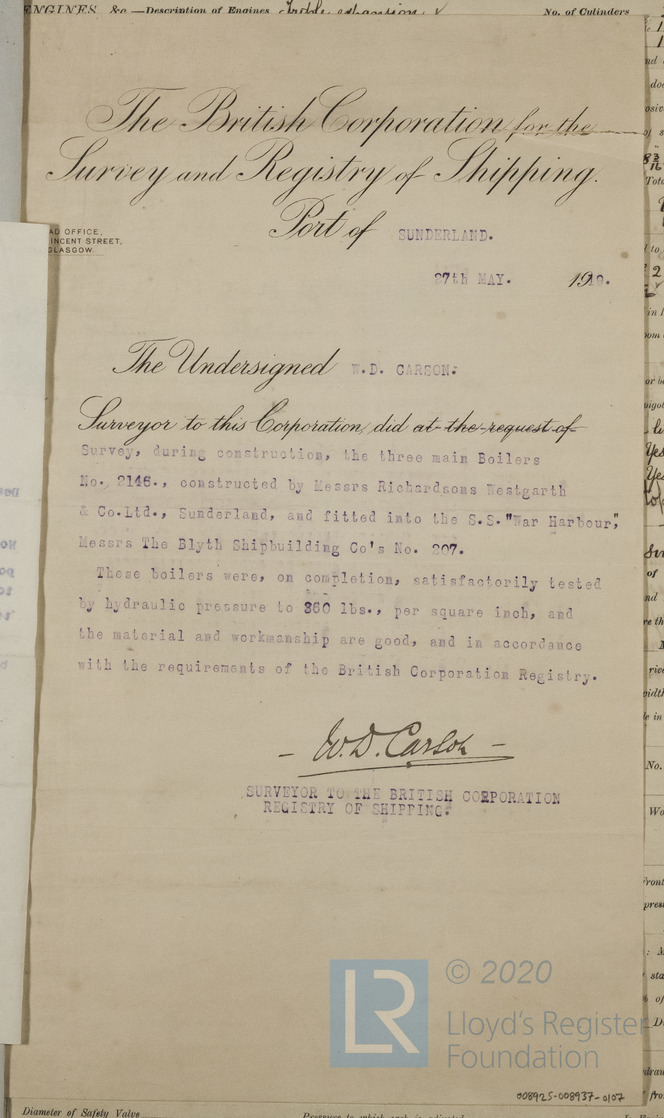 ENGINES &c.—Description of Engines Triple expansion No. of Cylinders
The British Corporation for the
Survey and Registry of Shipping.
Port of SUNDERLAND.
AD OFFICE,
INCENT STREET,
GLASGOW.
27th MAY. 1919.
The Undersigned W.D. CARSON.
Surveyor to this Corporation, did at the request of
Survey, during construction, the three main Boilers
No. 2146., constructed by Messrs Richardsons Westgarth
& Co.Ltd., Sunderland, and fitted into the S.S."War Harbour",
Messrs The Blyth Shipbuilding Co's No. 207.
These boilers were, on completion, satisfactorily tested
by hydraulic pressure to 360 lbs., per square inch, and
the material and workmanship are good, and in accordance
with the requirements of the British Corporation Registry.
- W.D. Carson -
SURVEYOR TO THE BRITISH CORPORATION
REGISTRY OF SHIPPING.
LR © 2020
Lloyd's Register
Foundation
008925-008937-0107
Diameter of Safety Valve